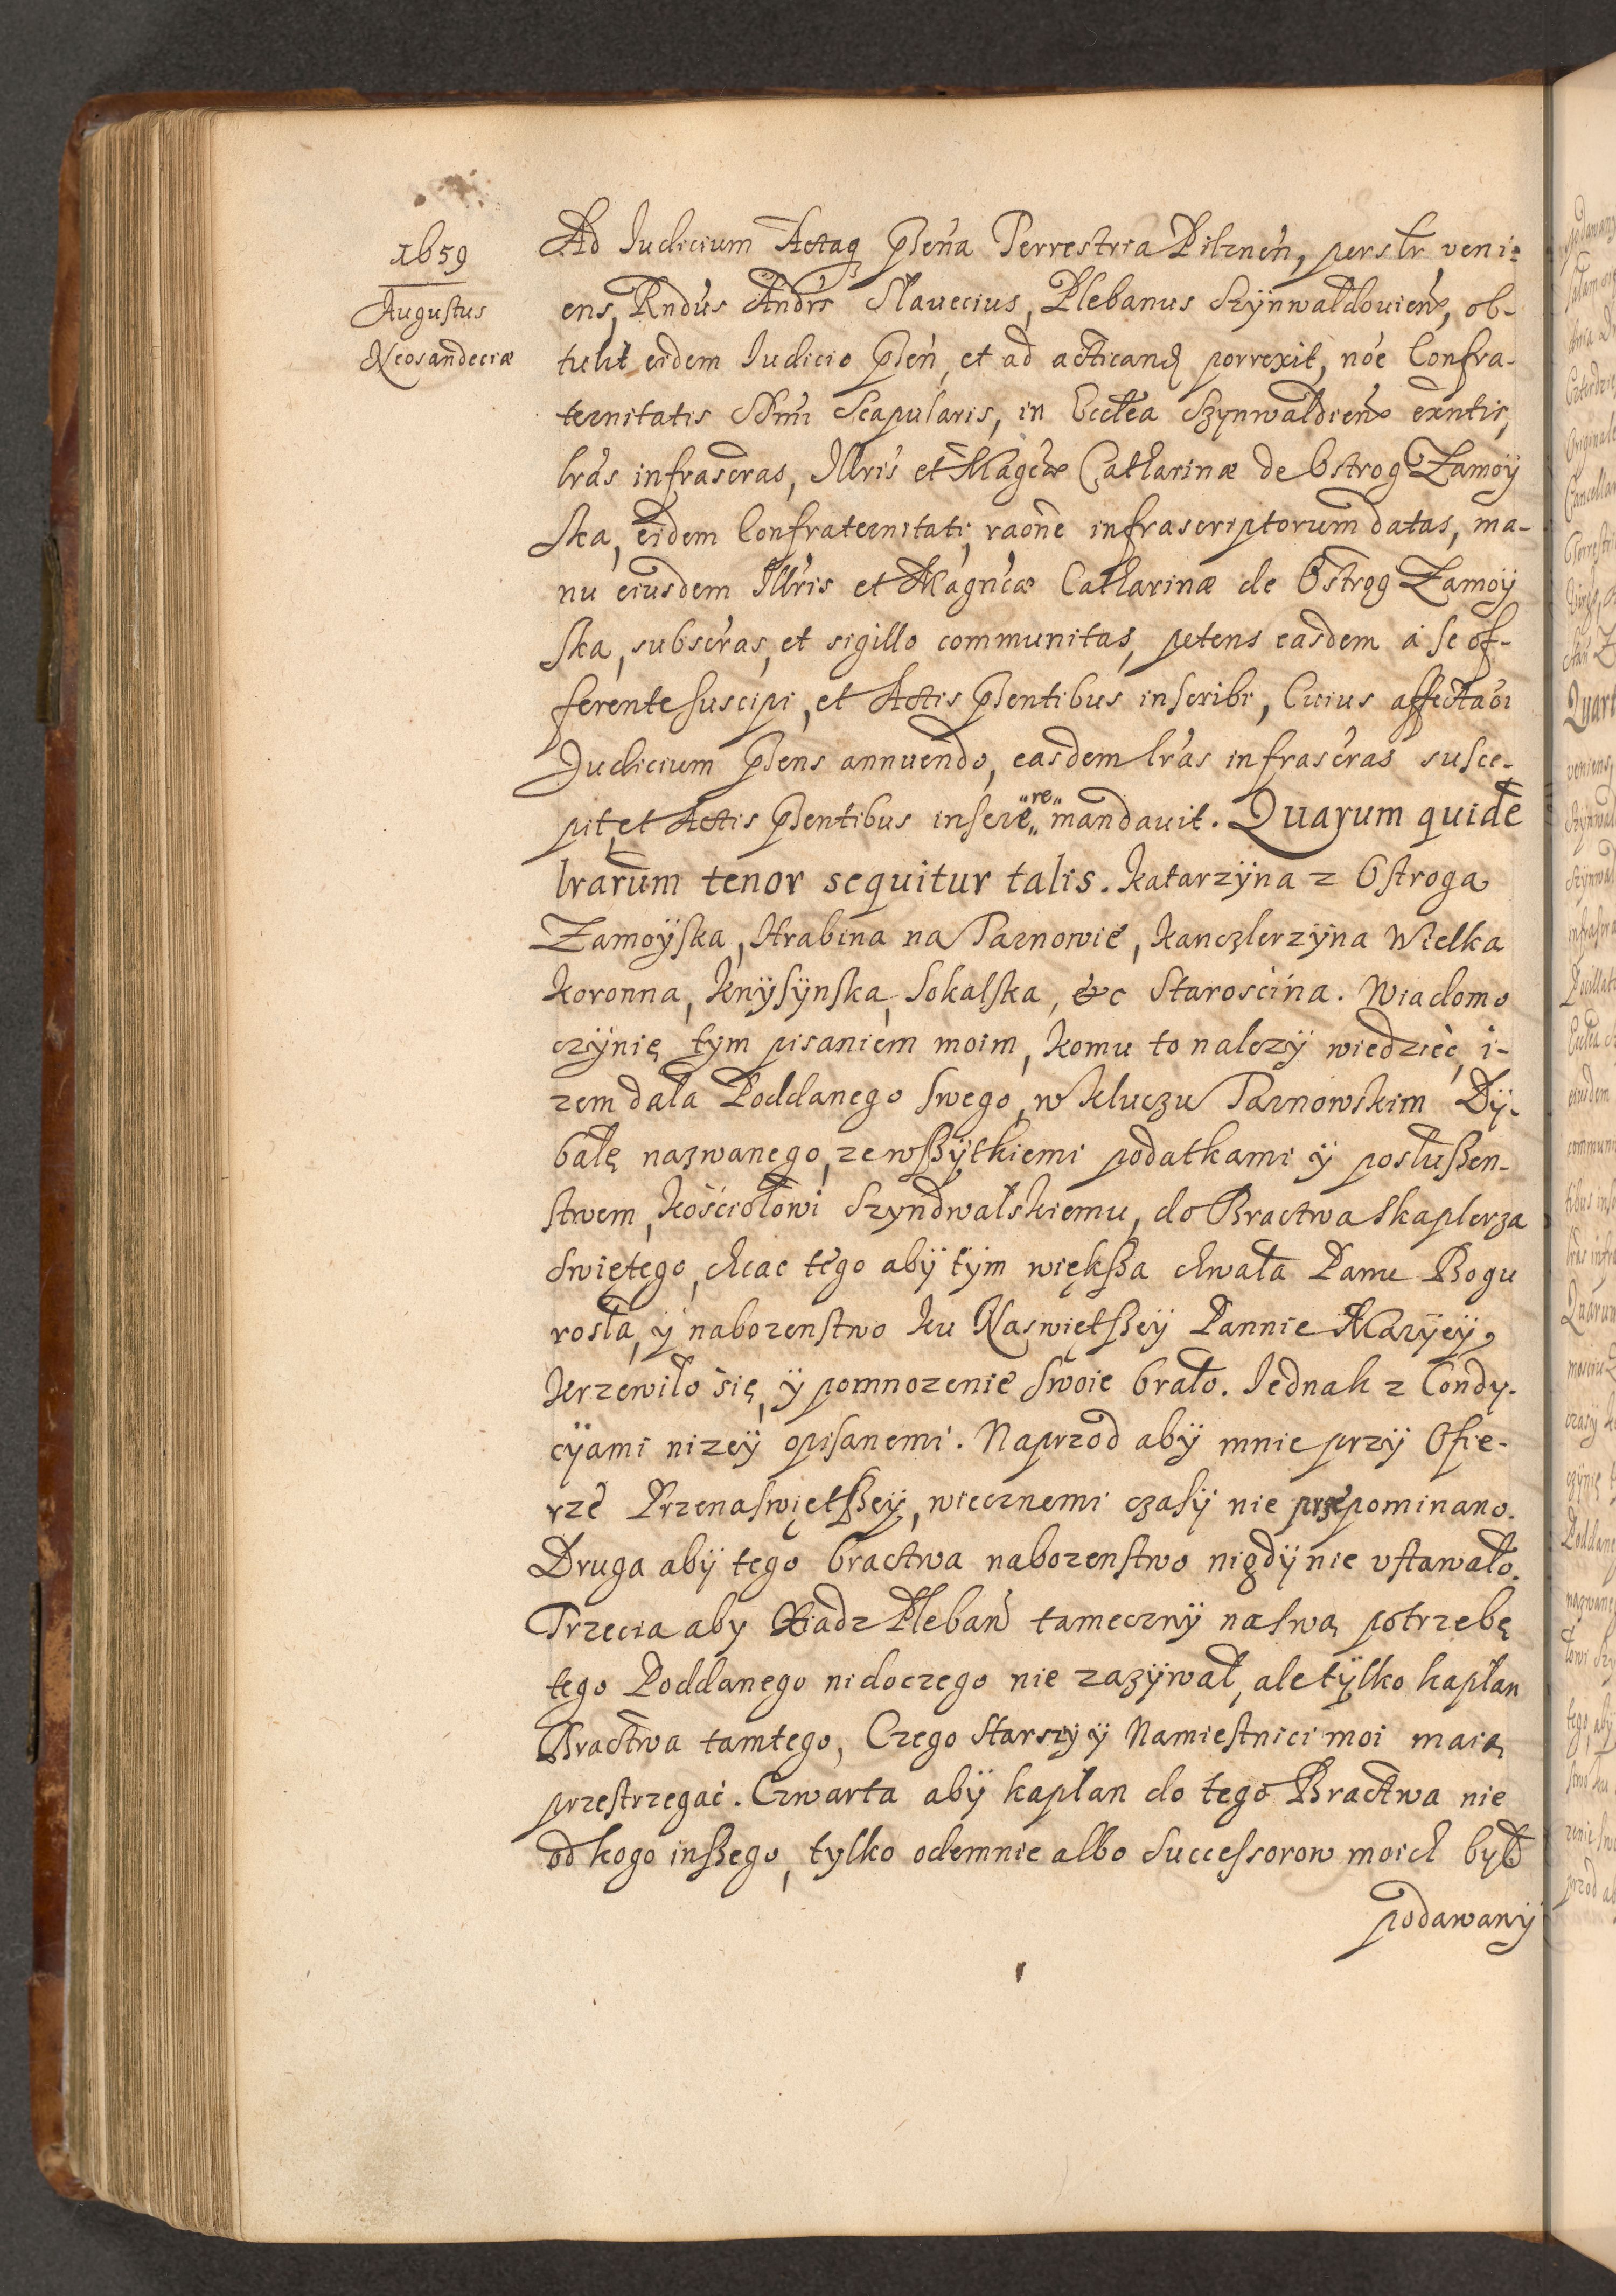 1659
Augustus
Neosandeciæ
Ad Iudicium Actaq pñtia Terrestria Pilznen, perslr veni-
ens, Rndus Andrs Slavecius, Plebanus Szÿnwaldovien, ob-
tulit eidem Iudicio pñen, et ad acticand porrexit, noe Confra-
ternitatis SSmi Scapularis, in Ecclea Szynwaldien exntis,
lras infrascras, Illris et Magcæ Catharinæ de Ostrog Zamoÿ
ska, eidem Confraternitati, raone infrascriptorum datas, ma-
nu eiusdem Illris et Magncæ Catharinæ de Ostrog Zamoÿ
ska, subscras, et sigillo communitas, petens easdem a se of-
ferente suscipi, et Actis pñsentibus inscribi, Cuius affectaoi
Iudicium pñsens annuendo, easdem lras infrascras susce-
pit, et Actis pñsentibus insere „re„ mandavit. Quarum quidē
lrarum tenor sequitur talis. Katarzÿna z Ostroga
Zamoÿska, Hrabina na Tarnowie, Kanczlerzÿna Wielka
Koronna, Knÿsÿnska, Sokalska, &c Starościna. Wiadomo
czÿnię tym pisaniem moim, komu to nalezÿ wiedzieć, i-
zem dała Poddanego swego, w Kluczu Tarnowskim Dÿ-
bałę nazwanego, ze wßÿtkiemi podatkami ÿ posłußen-
stwem, Kościołowi Szyndwalskiemu, do Bractwa Skaplerza
Swiętego, chcac tego abÿ tÿm więkßa chwała Panu Bogu
rosła, ÿ nabozenstwo ku Naswiętßeÿ Pannie Marÿeÿ,
krzewiło się, ÿ pomnozenie swoie brało. Iednak z Condy-
cÿami nizeÿ opisanemi. Naprzod abÿ mnie przÿ Ofie-
rze Przenaswiętßeÿ, wiecznemi czasÿ nie przepominano.
Druga abÿ tego bractwa nabozenstwo nigdÿ nie ustawało.
Trzecia aby Xiadz Pleban tamecznÿ na swą potrzebę
tego Poddanego ni do czego nie zazÿwał, ale tÿlko kapłan
Bractwa tamtego, Czego Starszÿ ÿ Namiestnici moi maią
przestrzegać. Czwarta abÿ kapłan do tego Bractwa nie
od kogo inßego, tylko odemnie albo Successorow moich był
podawanÿ